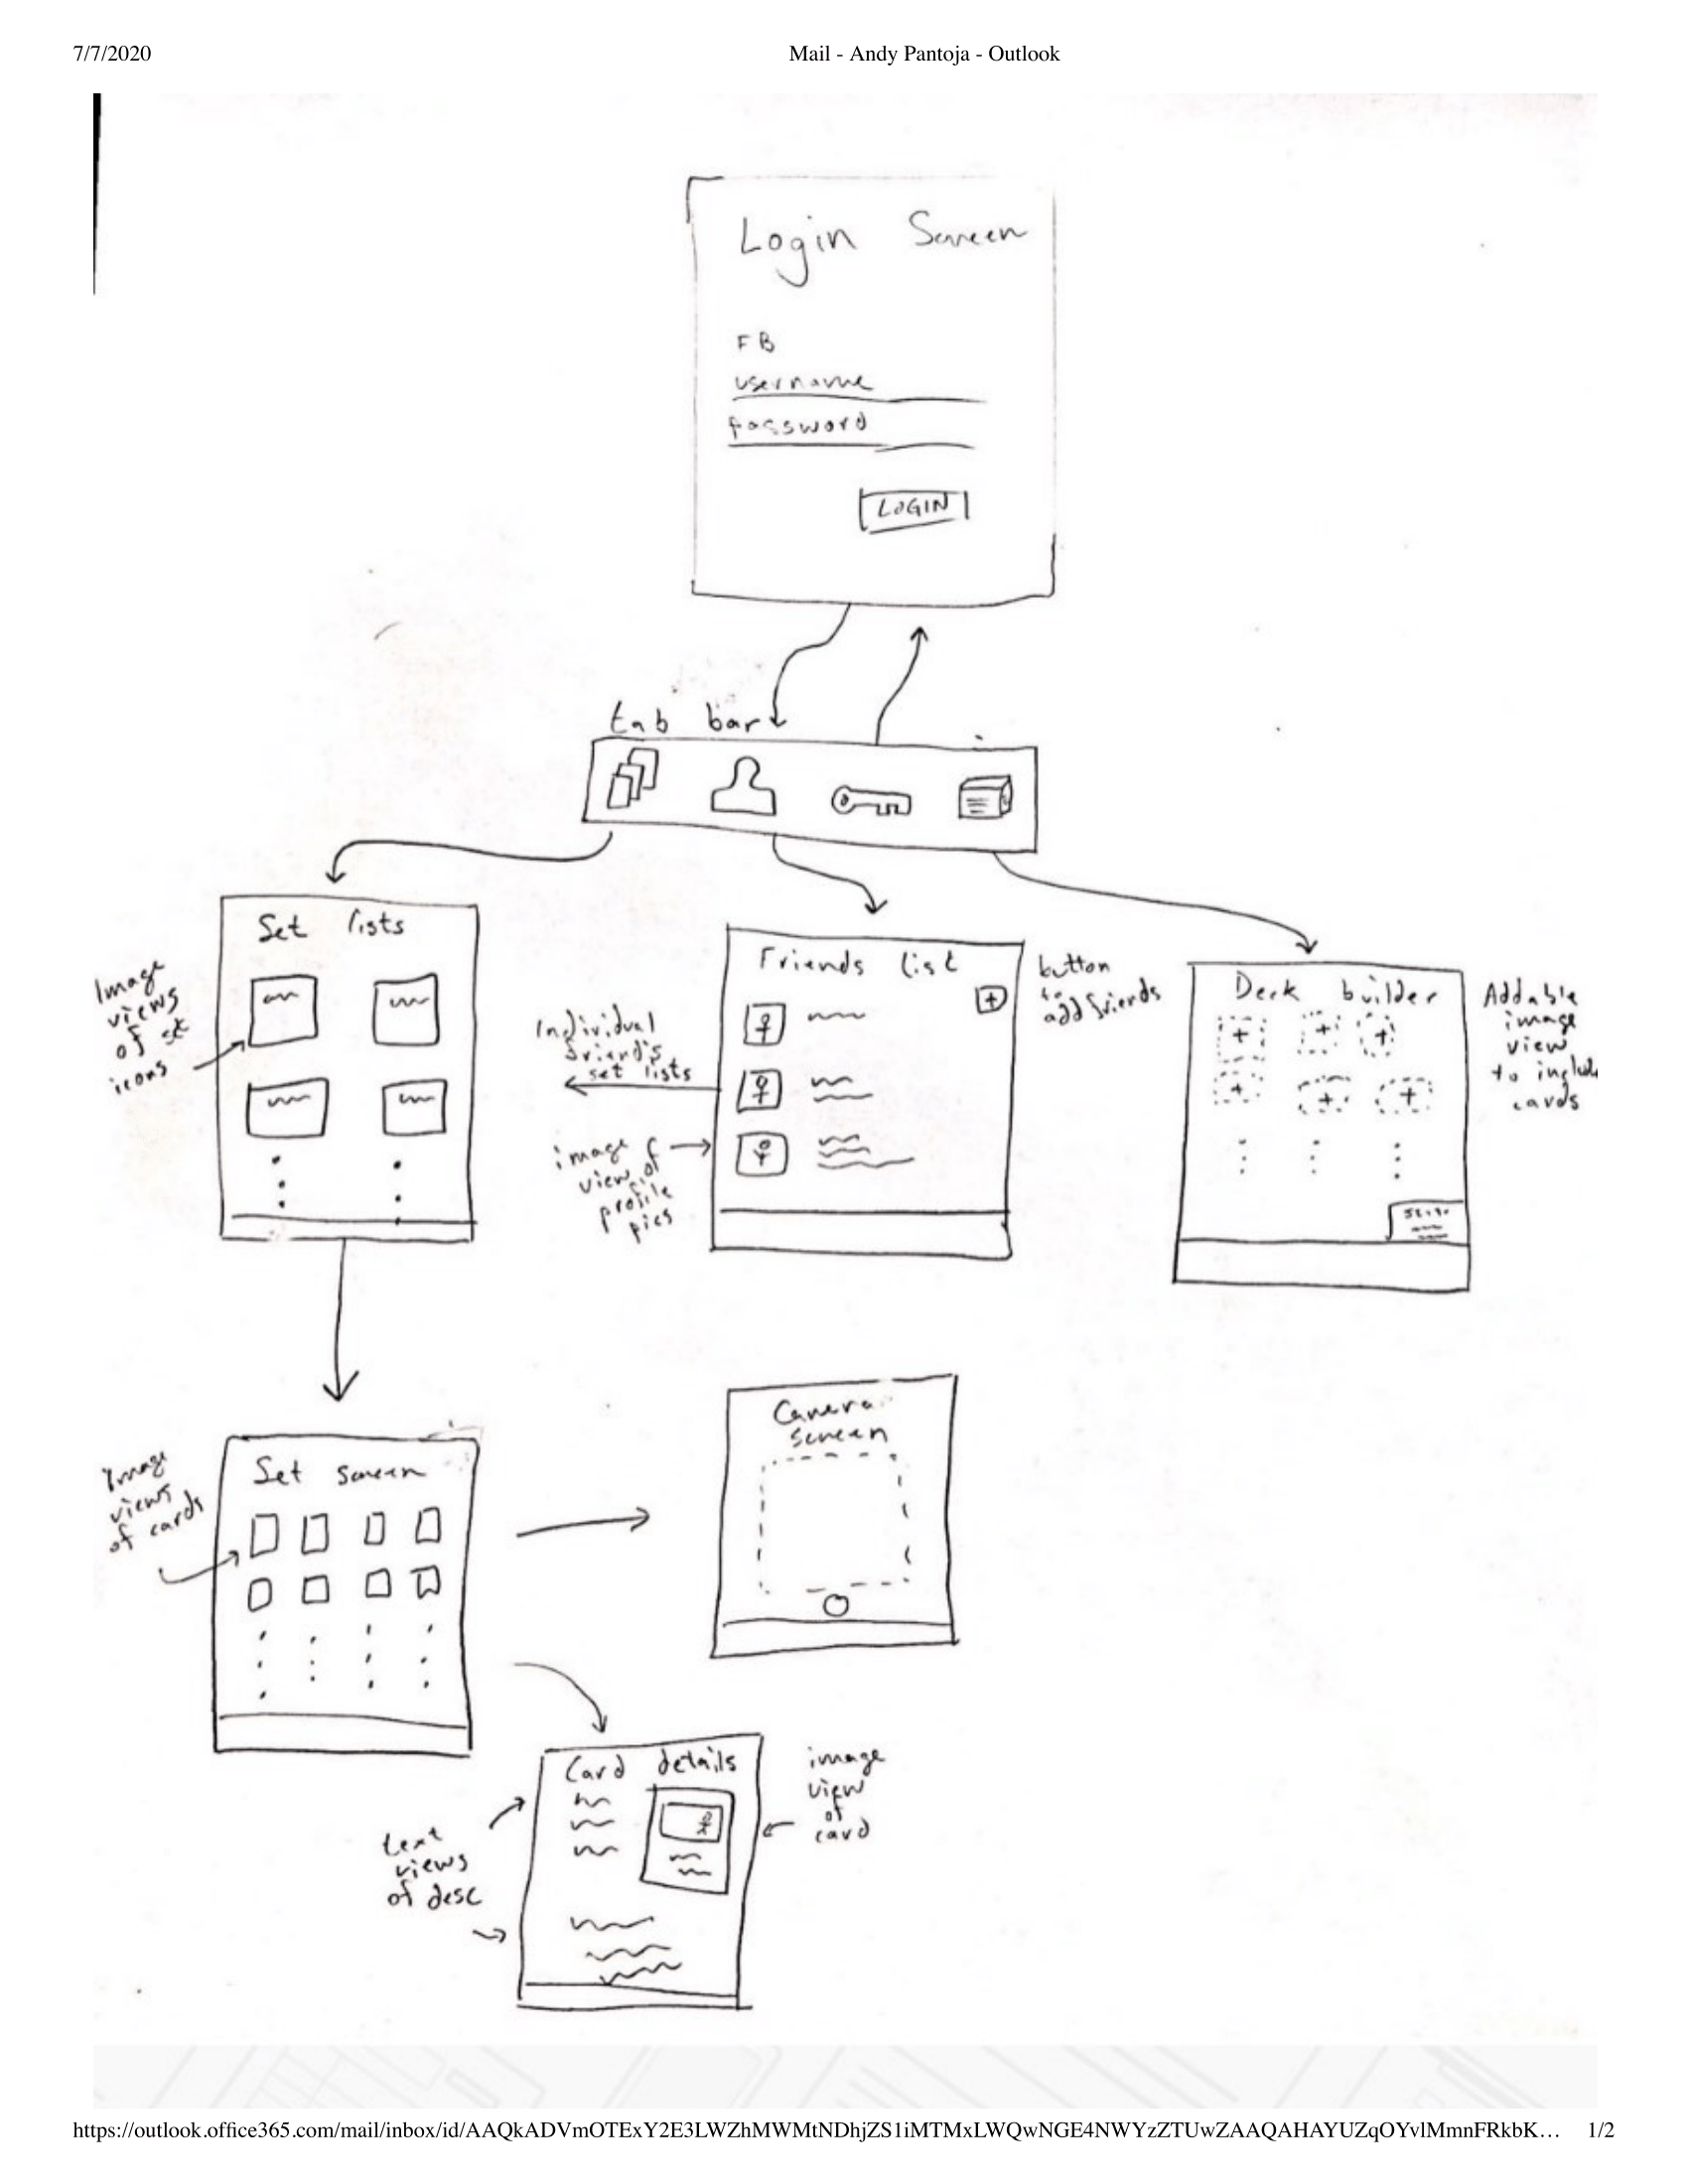 7/7/2020
Mail - Andy Pantoja - Outlook
Login Screen
FB
username
password
LOGIN
tab bar
Set lists
Image
views
of set
icons
Friends list
button
to
add friends
Individual
friend's
set lists
image
view of
profile
pics
Deck builder
Addable
image
view
to include
cards
Set screen
Image
views
of cards
Camera
screen
Card details
text
views
of desc
image
view
of
card
https://outlook.office365.com/mail/inbox/id/AAQkADVmOTExY2E3LWZhMWMtNDhjZS1iMTMxLWQwNGE4NWYzZTUwZAAQAHAYUZqOYvlMmnFRkbK…
1/2